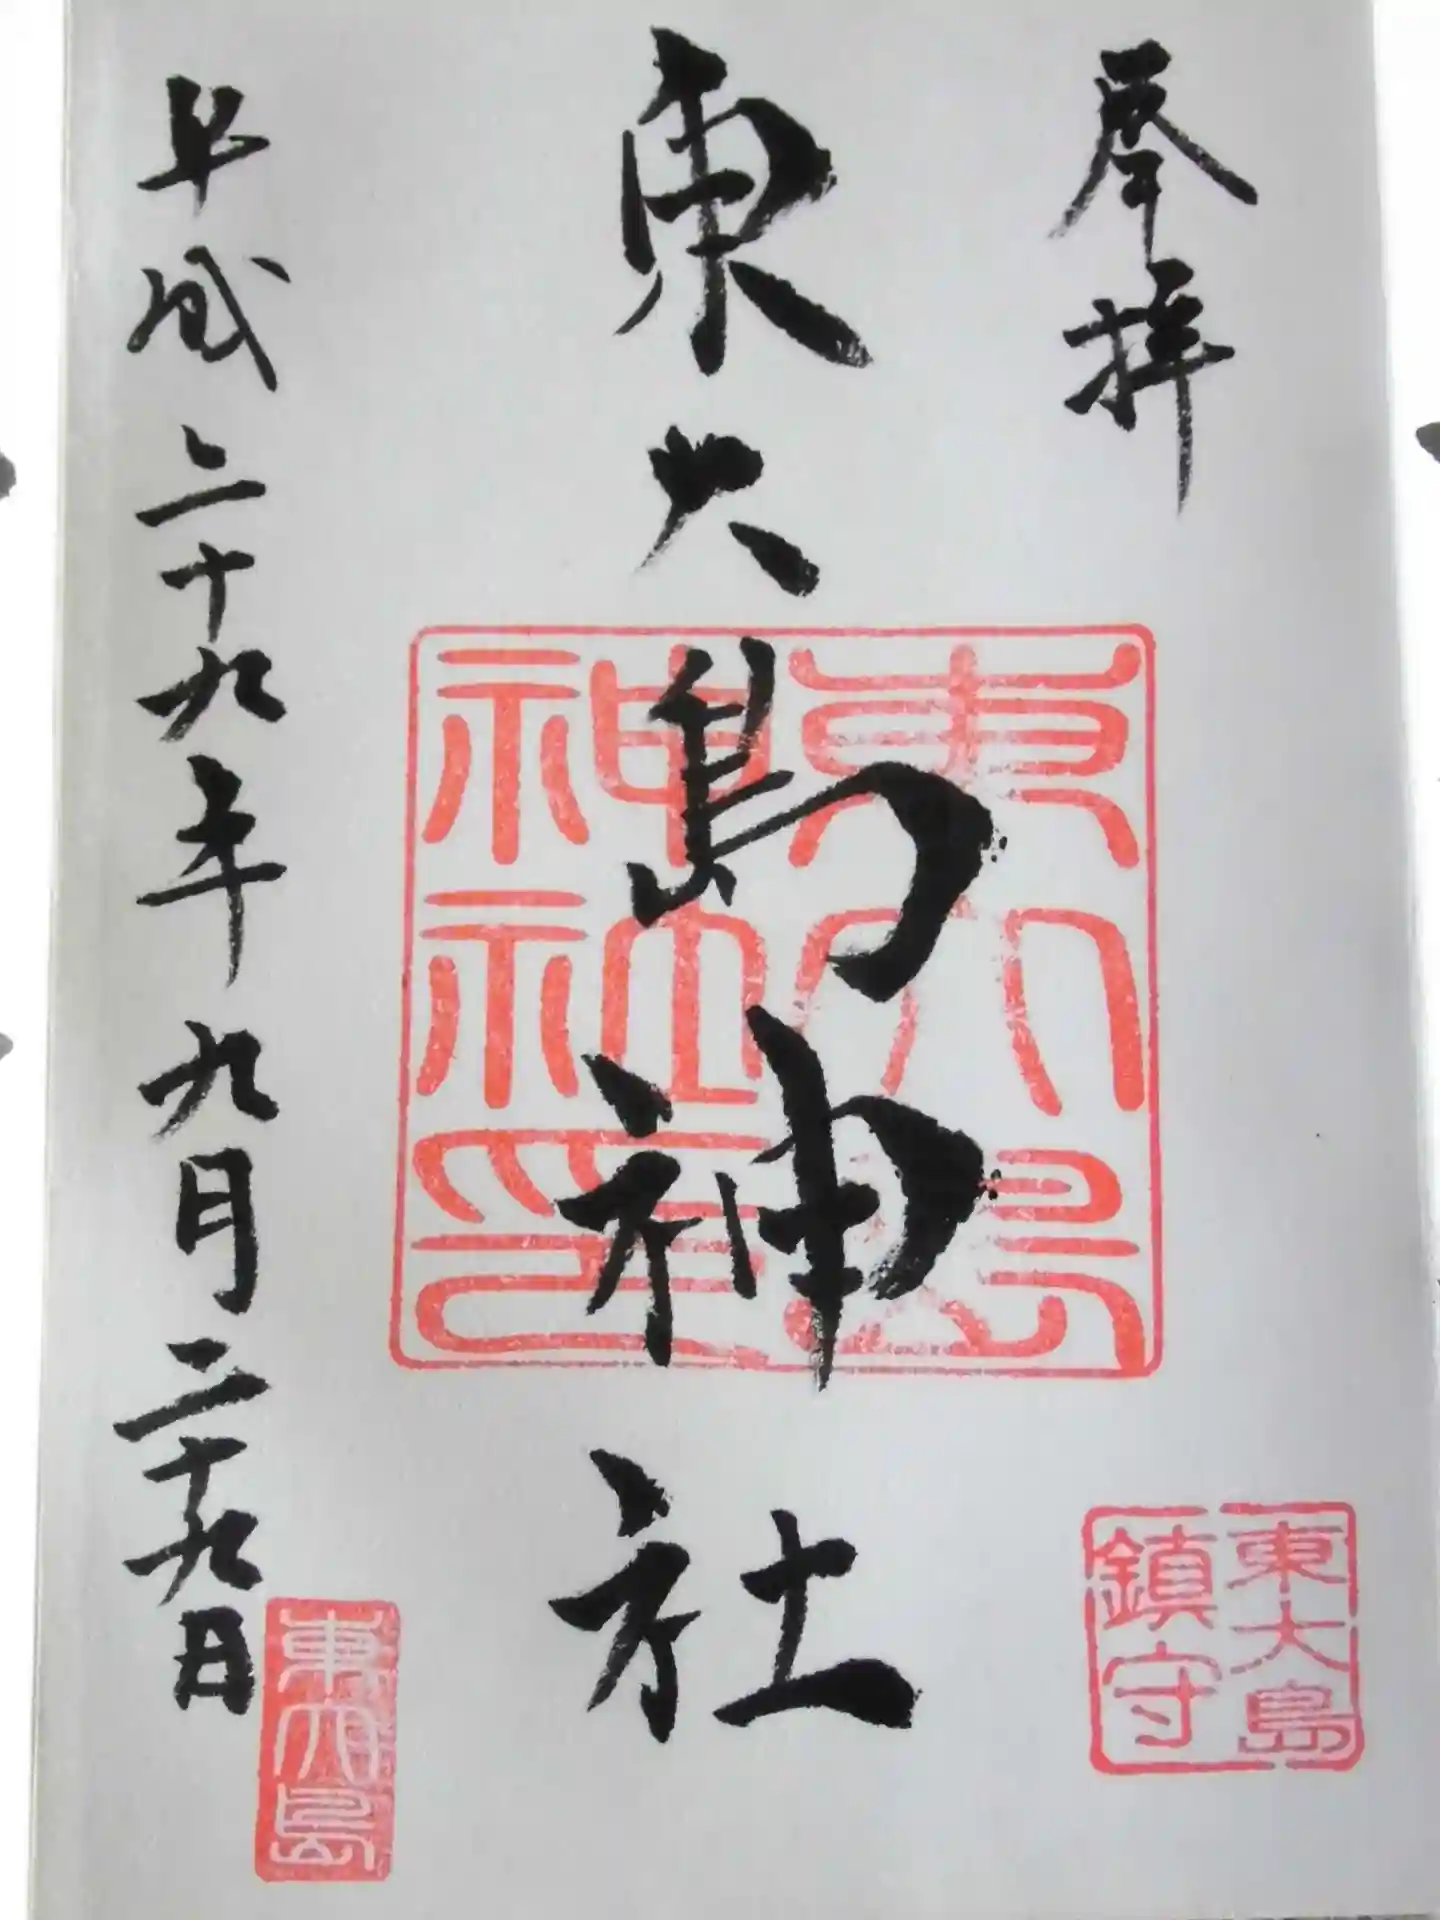 奉拝
東大島神社
平成二十九年九月二十九日
東大島
神社印
東大島
鎮守
東大島